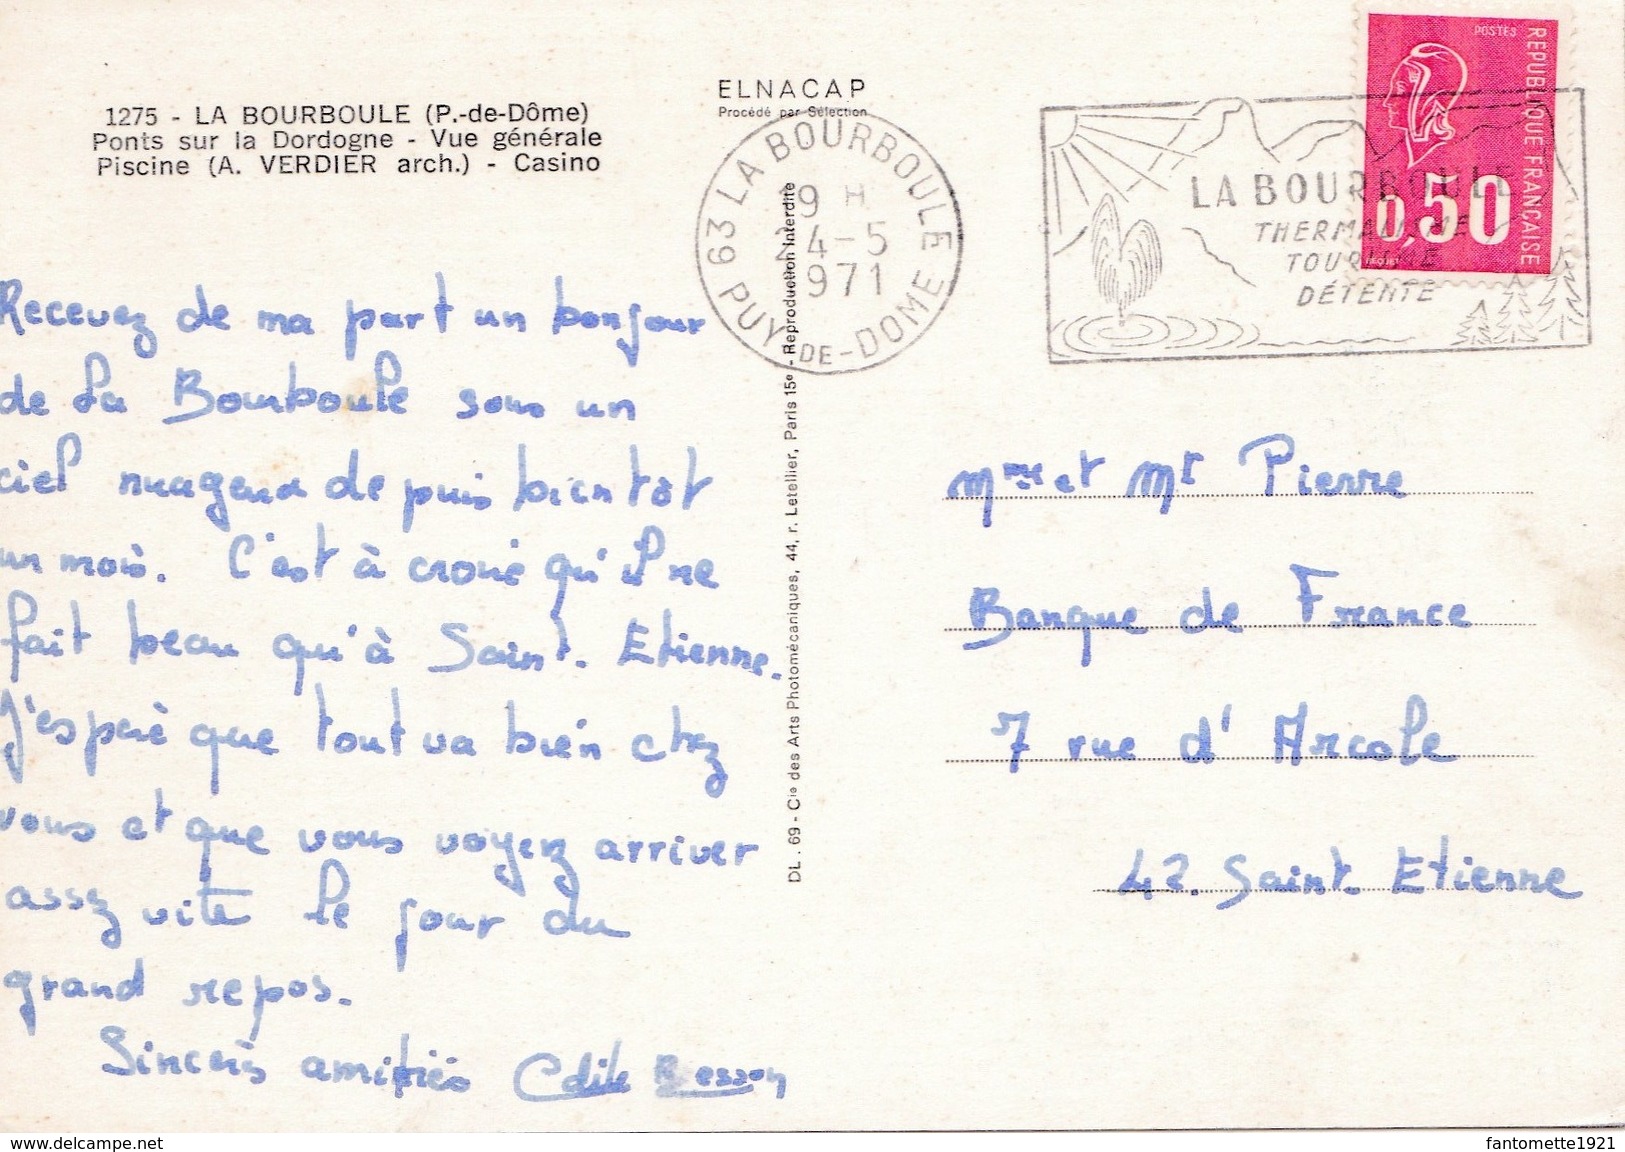 1275 - LA BOURBOULE (P.-de-Dôme)
Ponts sur la Dordogne - Vue générale
Piscine (A. VERDIER arch.) - Casino
ELNACAP
Procédé par Sélection
63 LA BOURBOULE
PUY-DE-DOME
9 H
4-5
971
LA BOURBOULE
THERMALISME
TOURISME
DÉTENTE
POSTES
REPUBLIQUE FRANÇAISE
0,50
BEQUET
Recevez de ma part un bonjour
de La Bourboule sous un
ciel nuageux depuis bientôt
un mois. C'est à croire qu'il ne
fait beau qu'à Saint. Etienne.
J'espère que tout va bien chez
vous et que vous voyez arriver
assez vite le jour du
grand repos.
Sincères amitiés Odile Besson
DL. 69 - Cie des Arts Photomécaniques, 44, r. Letellier, Paris 15e - Reproduction Interdite
Mme et Mr Pierre
Banque de France
7 rue d'Arcole
42. Saint. Etienne
www.delcampe.net
fantomette1921